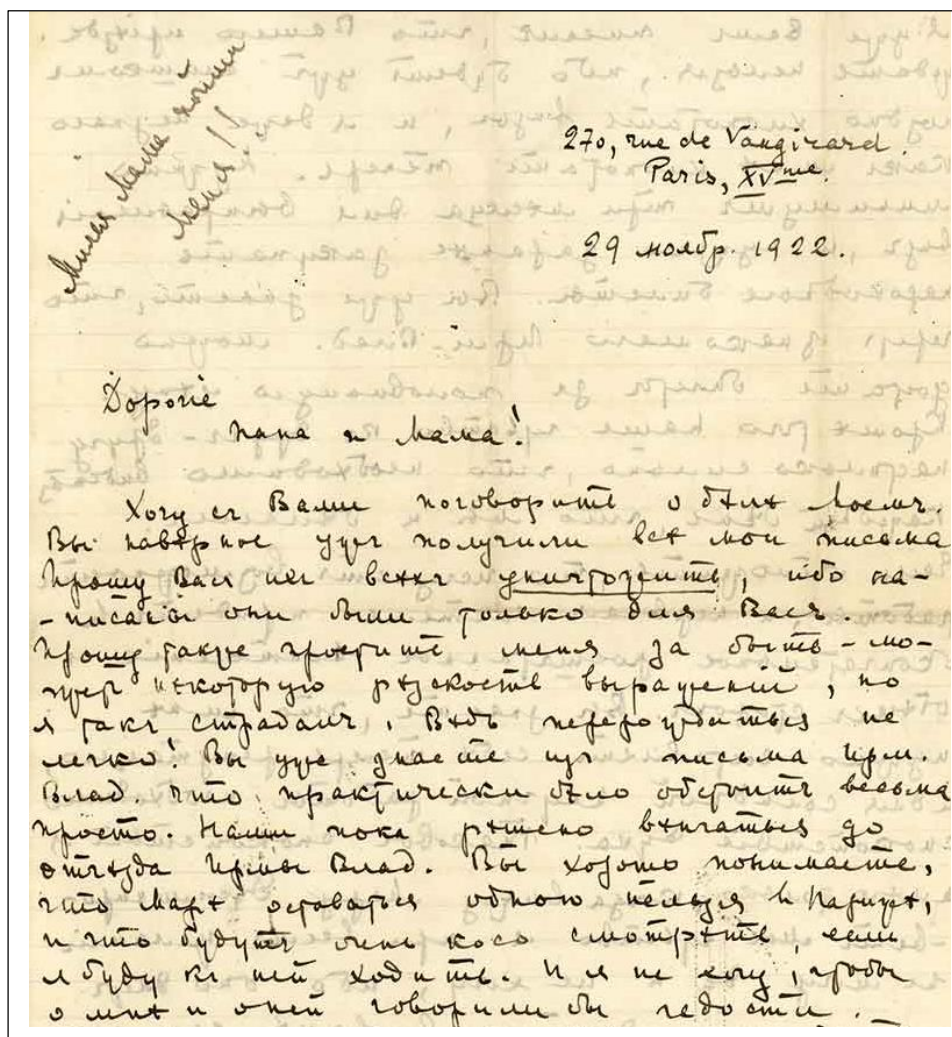 Милая Мама пойми
меня!!
270, rue de Vaugirard.
Paris, XVme.
29 ноябр. 1922.
Дорогіе
папа и мама!
Хочу съ Вами поговорить о дѣлѣ моемъ.
Вы навѣрное ужъ получили всѣ мои письма
Прошу Васъ ихъ всѣхъ уничтожить, ибо на-
-писаны они были только для Васъ.
Прошу также простить меня за быть-мо-
жетъ нѣкоторую рѣзкость выраженій, но
я такъ страдалъ. Вѣдь переродиться не
легко! Вы уже знаете изъ письма Ирм.
Влад. что практически дѣло обстоитъ весьма
просто. Нами пока рѣшено вѣнчаться до
отъѣзда Ирмы Влад. Вы хорошо понимаете,
что Марѣ оставаться одною нельзя въ Парижѣ,
и что будутъ очень косо смотрѣть, если
я буду къ ней ходить. И я не хочу, чтобы
о мнѣ и о ней говорили бы гадости.